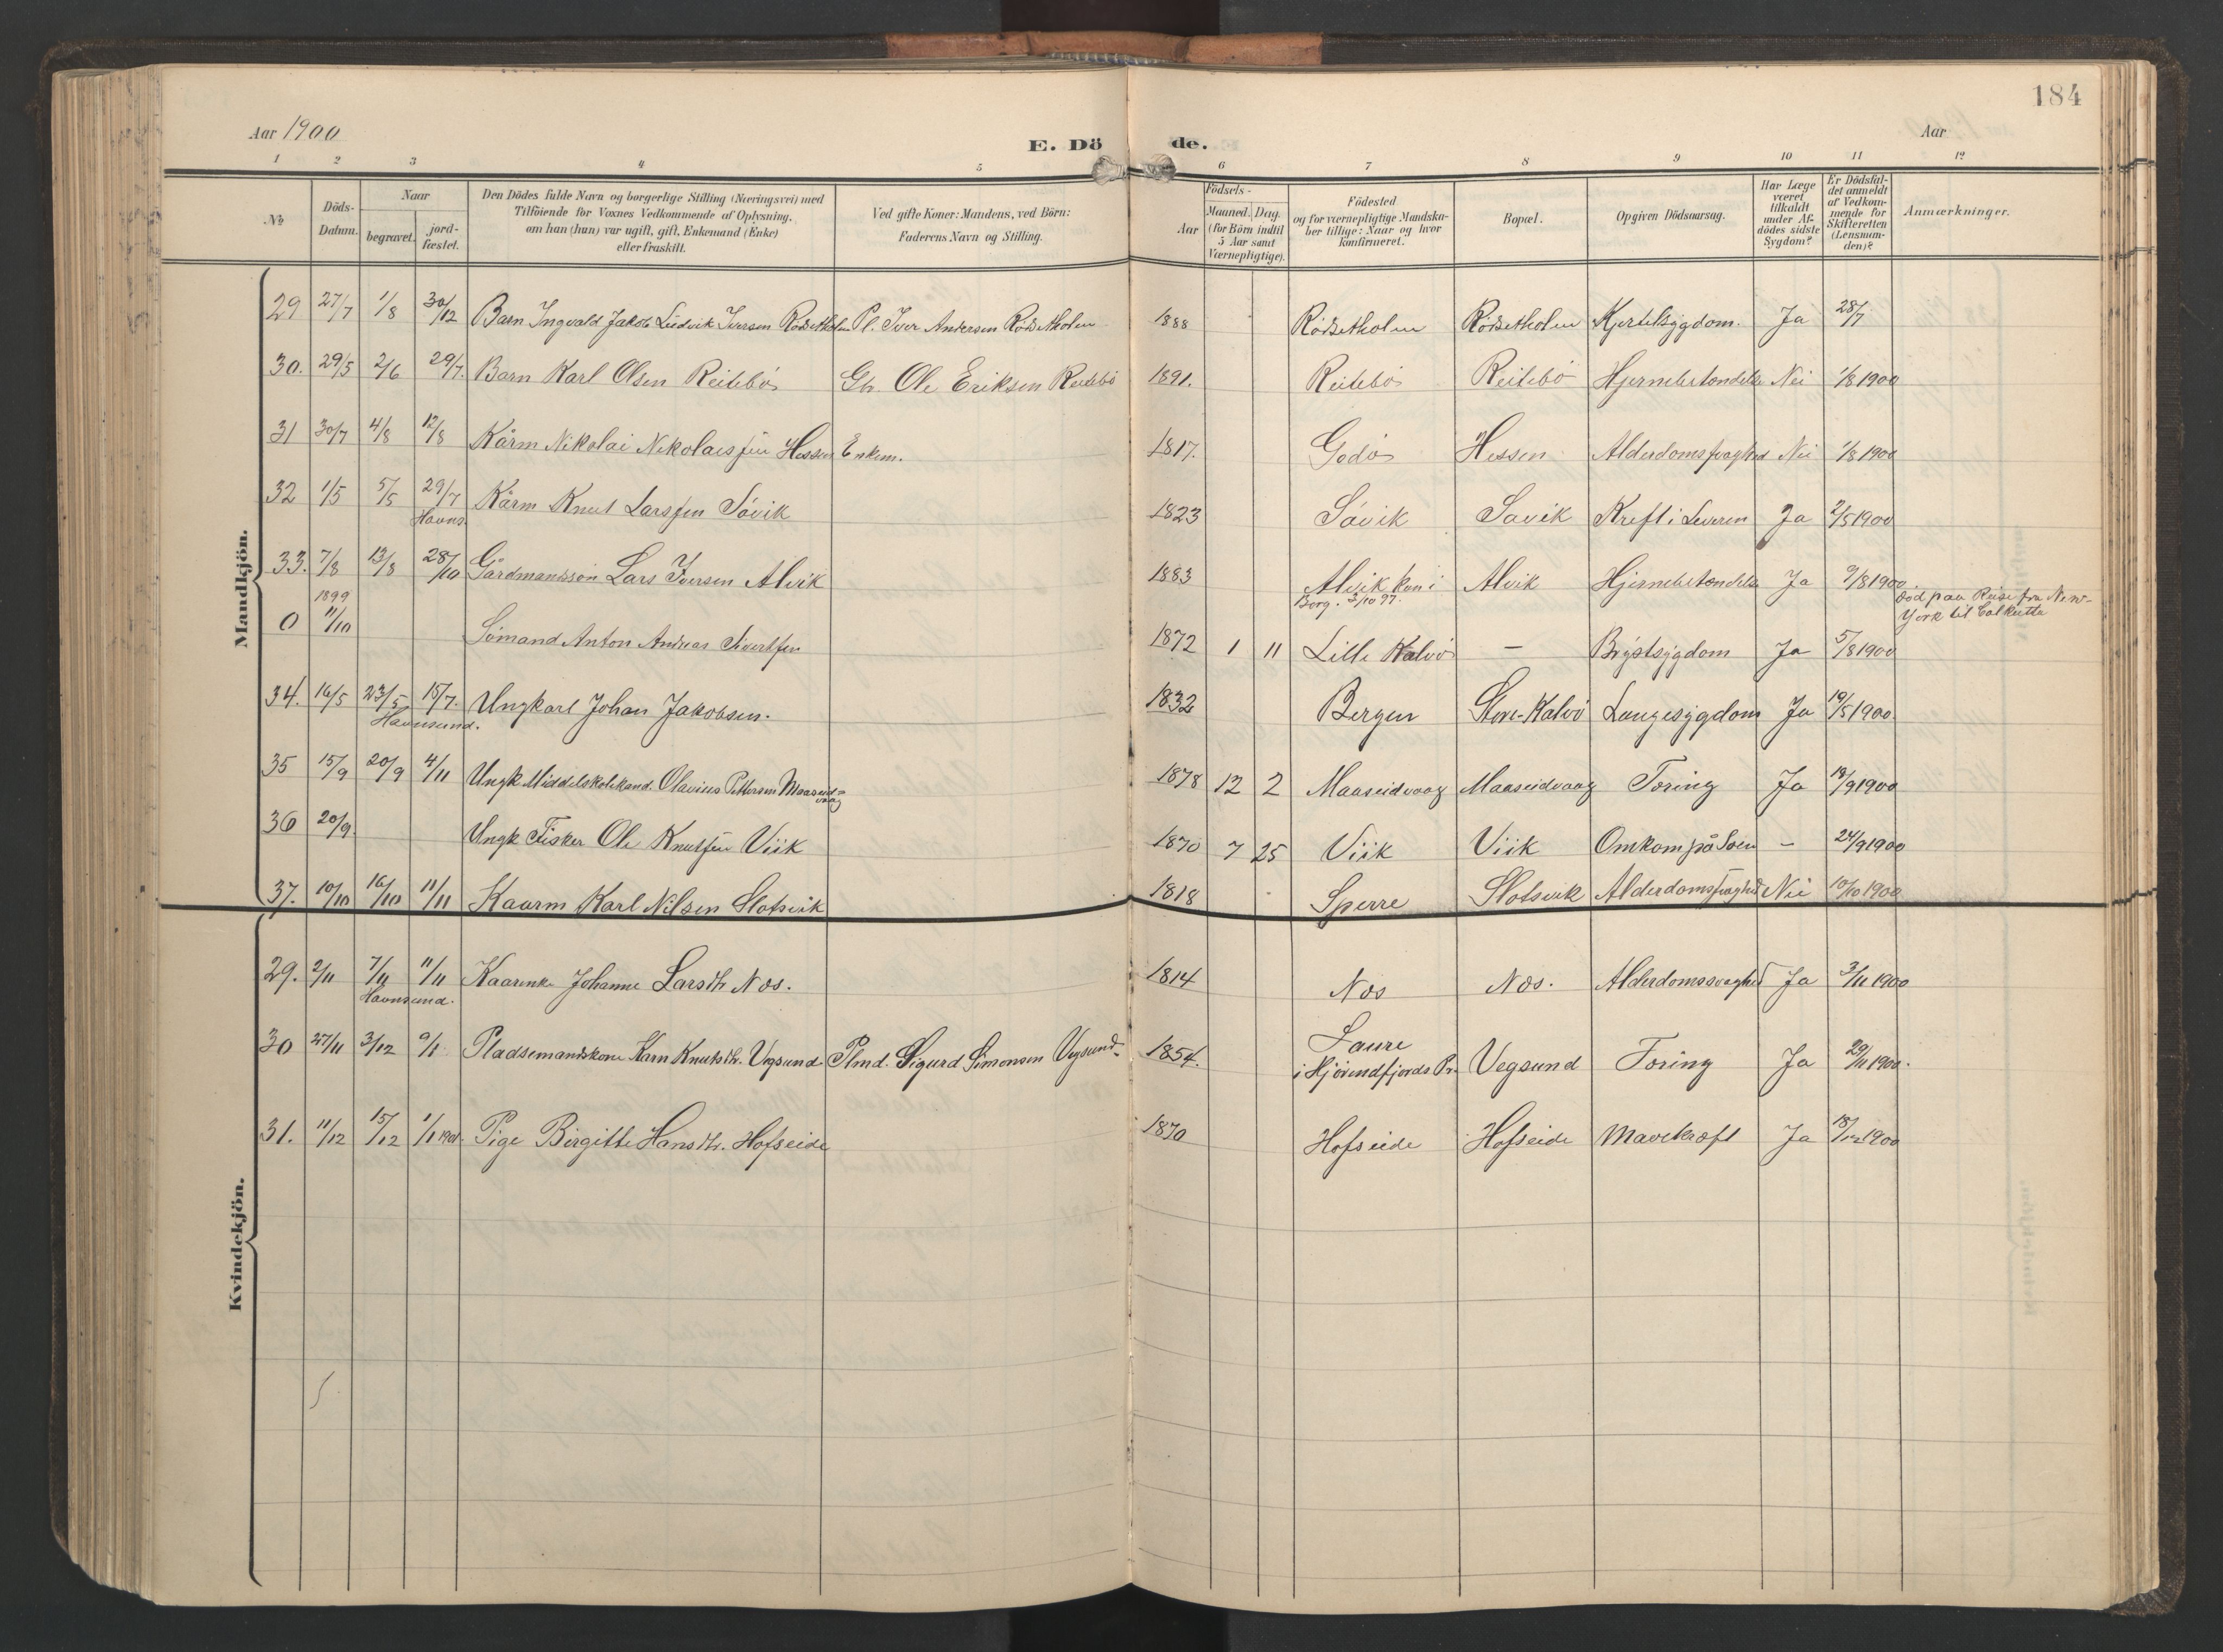 184
Aar 1900
E. Dö de.
Aar
1 2 3 4 5 6 7 8 9 10 11 12
№
Döds-Datum.
Naar
begravet.
jord-fæstet.
Den Dödes fulde Navn og borgerlige Stilling (Næringsvei) med
Tilföiende for Voxnes Vedkommende af Oplysning,
om han (hun) var ugift, gift, Enkemand (Enke)
eller fraskilt.
Ved gifte Koner: Mandens, ved Börn:
Faderens Navn og Stilling.
Födsels-
Aar
Maaned. Dag.
(for Börn indtil
5 Aar samt
Værnepligtige).
Födested
og for værnepligtige Mandska-
ber tillige: Naar og hvor
konfirmeret.
Bopæl.
Opgiven Dödsaarsag.
Har Læge
været
tilkaldt
under Af-
dödes sidste
Sygdom?
Er Dödsfal-
det anmeldt
af Vedkom-
mende for
Skifteretten
(Lensman-
den)?
Anmærkninger.
Mandkjön.
29 27/7 1/8 30/12 Barn Ingvald Jakob Ludvik Iversen Rödsetholm Pl. Iver Andersen Rödsetholm 1888 Rödsetholm Rödsetholm Kjertelsygdom. Ja 28/7
30. 29/5 2/6 29/7. Barn Karl Olsen Reitebö Gb. Ole Eriksen Reitebö 1891. Reitebö Reitebö Hjernebetændelse Nei 1/8 1900
31 30/7 4/8 12/8 Kårm Nikolai Nikolaisen Hessen Enkem. 1817. Godö Hessen Alderdomssvaghed Nei 1/8 1900
32 1/5 5/5 29/7 Kårm Knut Larssen Sövik 1823 Sövik Sövik Kreft i Leveren Ja 2/5 1900
Havns.
33. 7/8 13/8 28/10 Gårdmandssön Lars Iversen Alvik 1883 Alvik kon i Alvik Hjernebetændelse Ja 9/8 1900
Borg. 3/10 97.
Död paa Reise fra New-
York til Calkutta
0 1899 11/10 Sömand Anton Andreas Sivertsen 1872 1 11 Lille Kalvö – Brystsygdom Ja 5/8 1900
34. 16/5 23/5 15/7. Ungkarl Johan Jakobsen. 1832 Bergen Store-Kalvö Lungesygdom Ja 19/5 1900
Havnsund.
35 15/9 20/9 4/11 Ungk Middelskolekand. Olavius Pettersen Maaseid-
vaag 1878 12 2 Maaseidvaag Maaseidvaag Tæring Ja 18/9 1900
36 20/9 Ungk Fisker Ole Knutsen Viik 1870 7 25 Viik Viik Omkom på Söen – 24/9 1900
37. 10/10 16/10 11/11 Kaarm Karl Nilsen Slotsvik 1818 Sperre Slotsvik Alderdomssvaghed Nei 10/10 1900
Kvindekjön.
29. 2/11 7/11 11/11 Kaarenke Johanne Larsdtr Nos. 1814 Nos Nos. Alderdomssvaghed Ja 3/11 1900
Havnsund.
30 27/11 3/12 9/1 Pladsemandskone Karn Knutsdtr. Vegsund Plmd. Sigurd Simonsen Vegsund 1854. Saure
i Hjörendfjords Pr. Vegsund Tæring Ja 29/11 1900.
31. 11/12 15/12 1/1 1901. Pige Birgitte Hansdtr. Hofseide 1870 Hofseide Hofseide Mavekræft Ja 18/12 1900